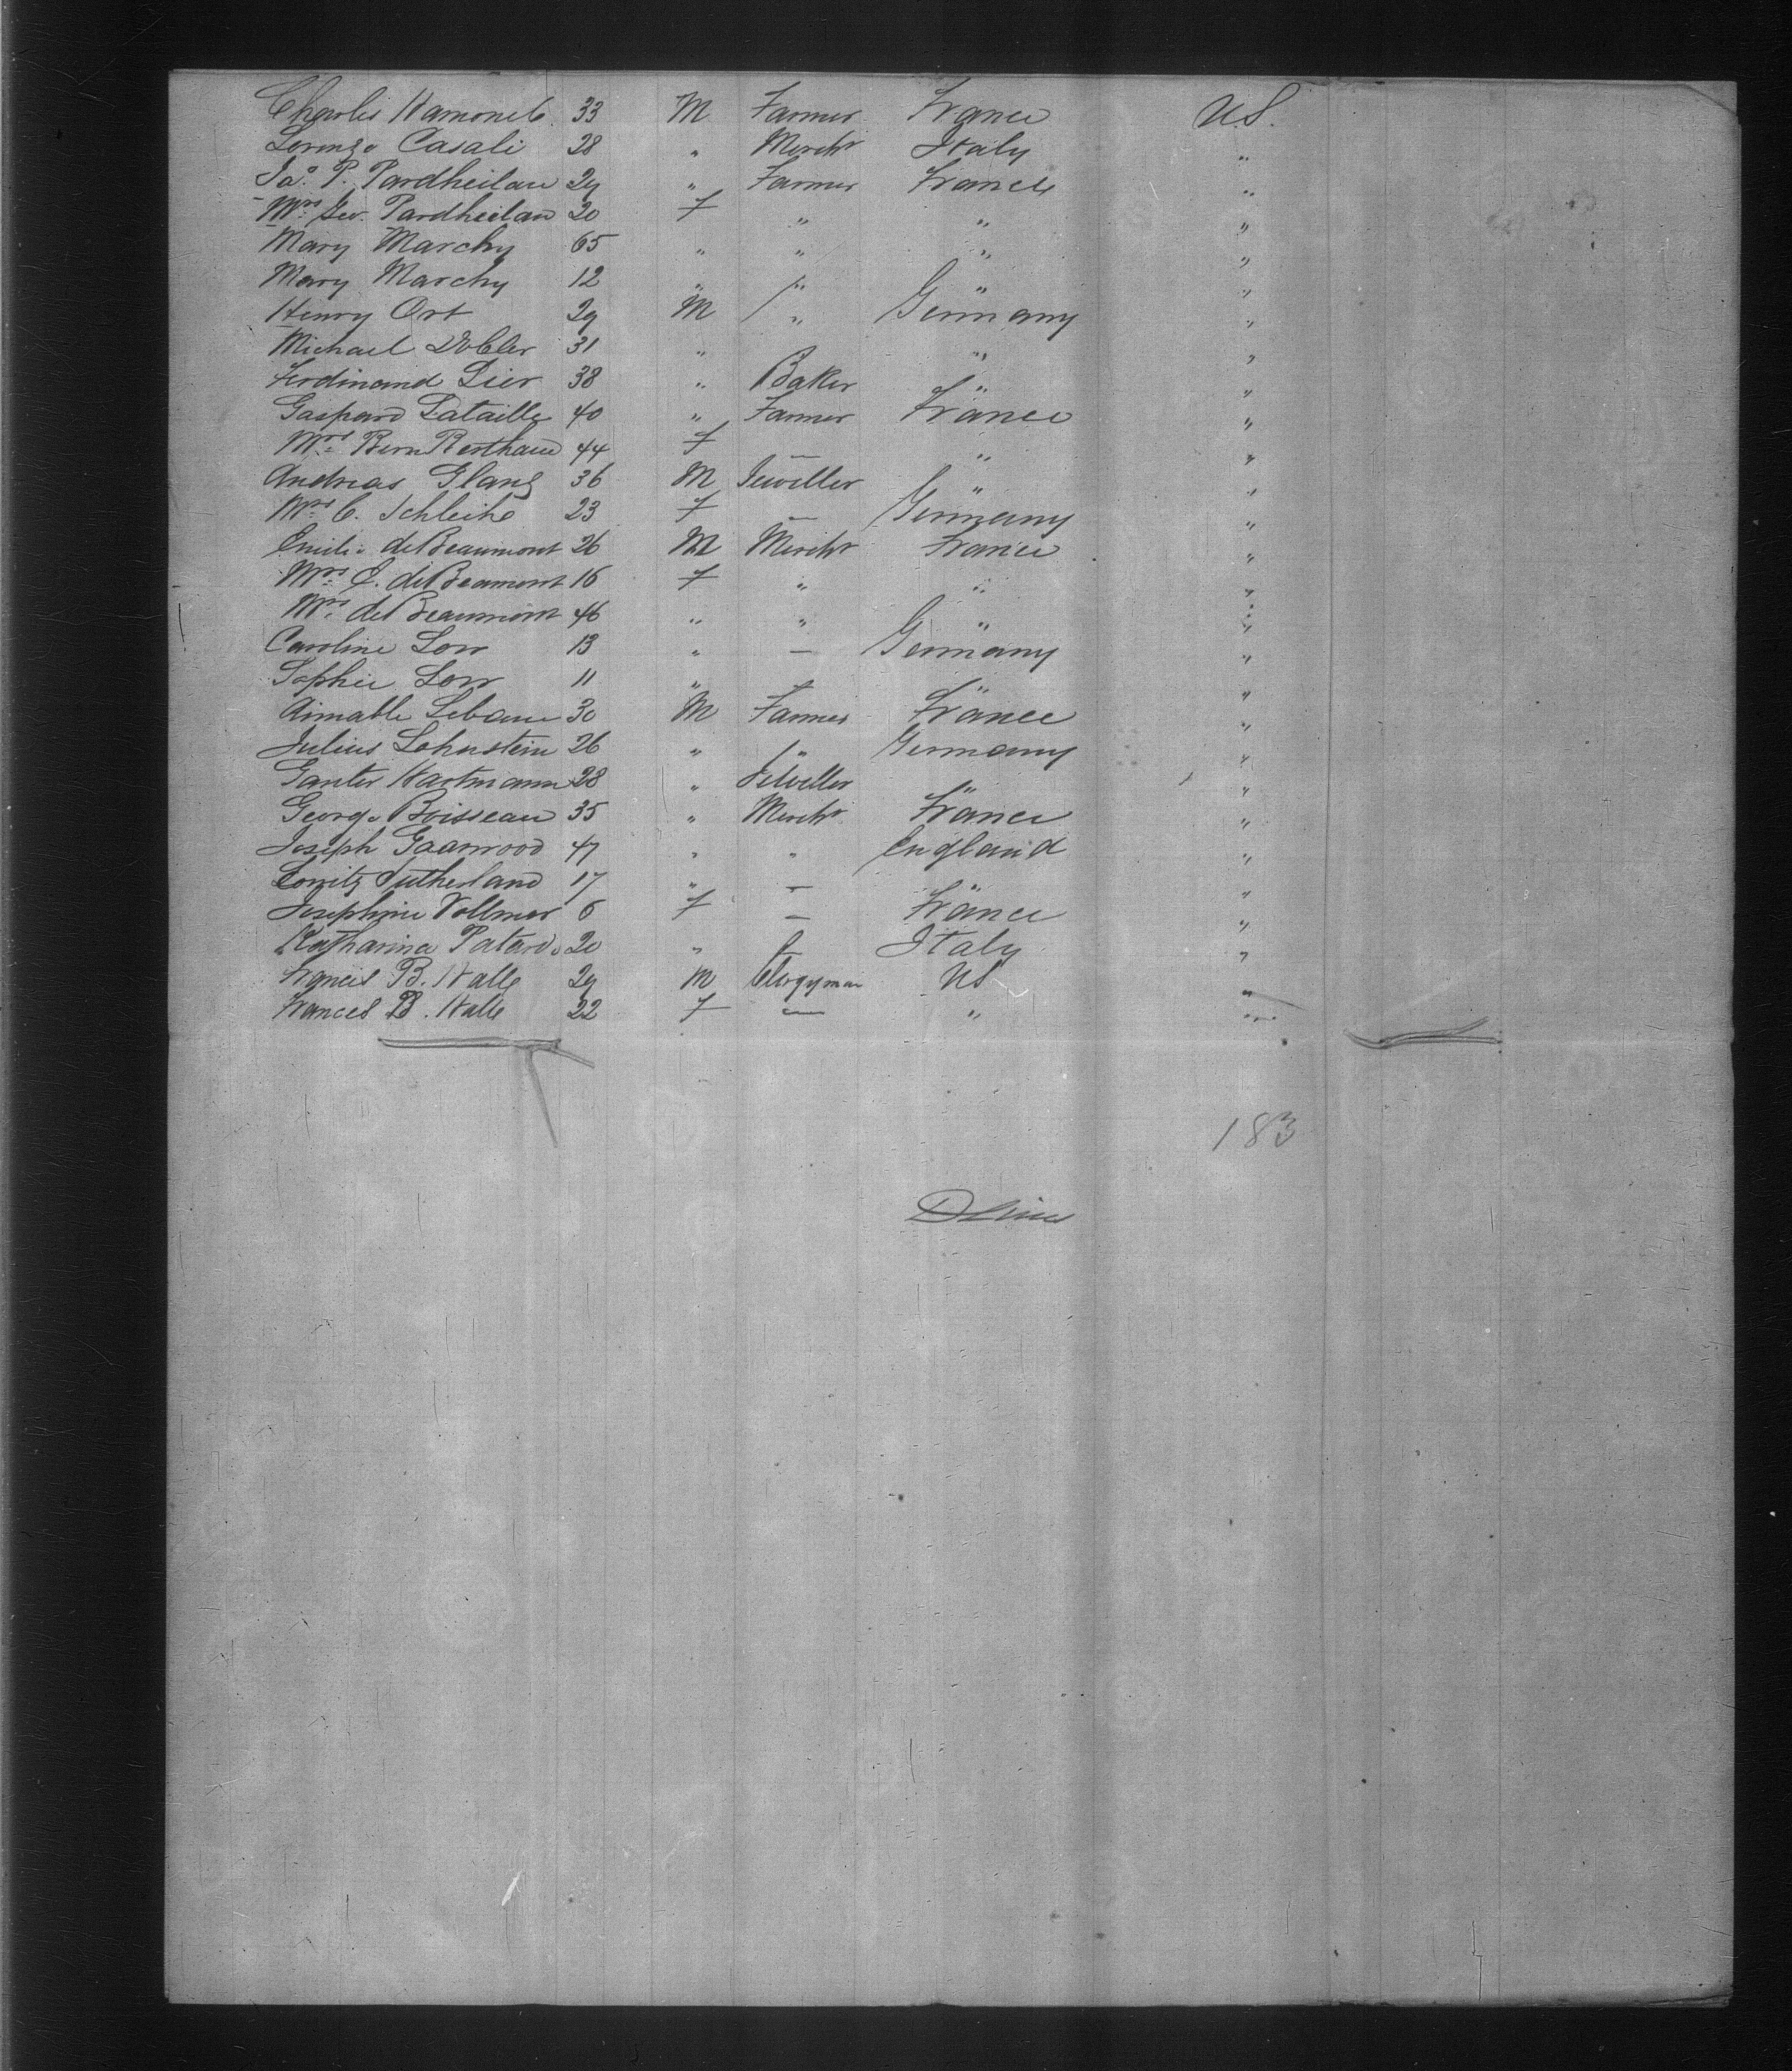 Charles Hamonet 33 M Farmer France U.S.
Lorenzo Casali 28 " Mercht Italy "
Jas. P. Pardheilan 29 " Farmer France "
Mrs Gev. Pardheilan 20 F " " "
Mary Marchy 65 " " " "
Mary Marchy 12 " " " "
Henry Ort 29 M " Germany "
Michael Dobler 31 " " "
Ferdinand Lier 38 " Baker " "
Gaspard Lataille 40 " Farmer France "
Mrs Bern Berthaud 44 F — " "
Andreas Glang 36 M Jeweller " "
Mrs C. Schleihe 23 F — Germany "
Emile de Beaumont 26 M Mercht France "
Mrs E. de Beaumont 16 F " " "
Mrs de Beaumont 46 " " " "
Caroline Low 13 " — Germany "
Sophie Low 11 " — " "
Aimable Lebaun 30 M Farmer France "
Julius Lohnstein 26 " " Germany "
Ganter Hartmann 28 " Jeweller " "
George Boisseau 35 " Mercht France "
Joseph Gaanwood 47 " " England "
Sutherland 17 " — " "
Josephine Vollmer 6 F — France "
Katharina Patardo 20 " — Italy "
Francis B. Halle 29 M Clergyman US "
Frances B. Halle 22 F — " "
183